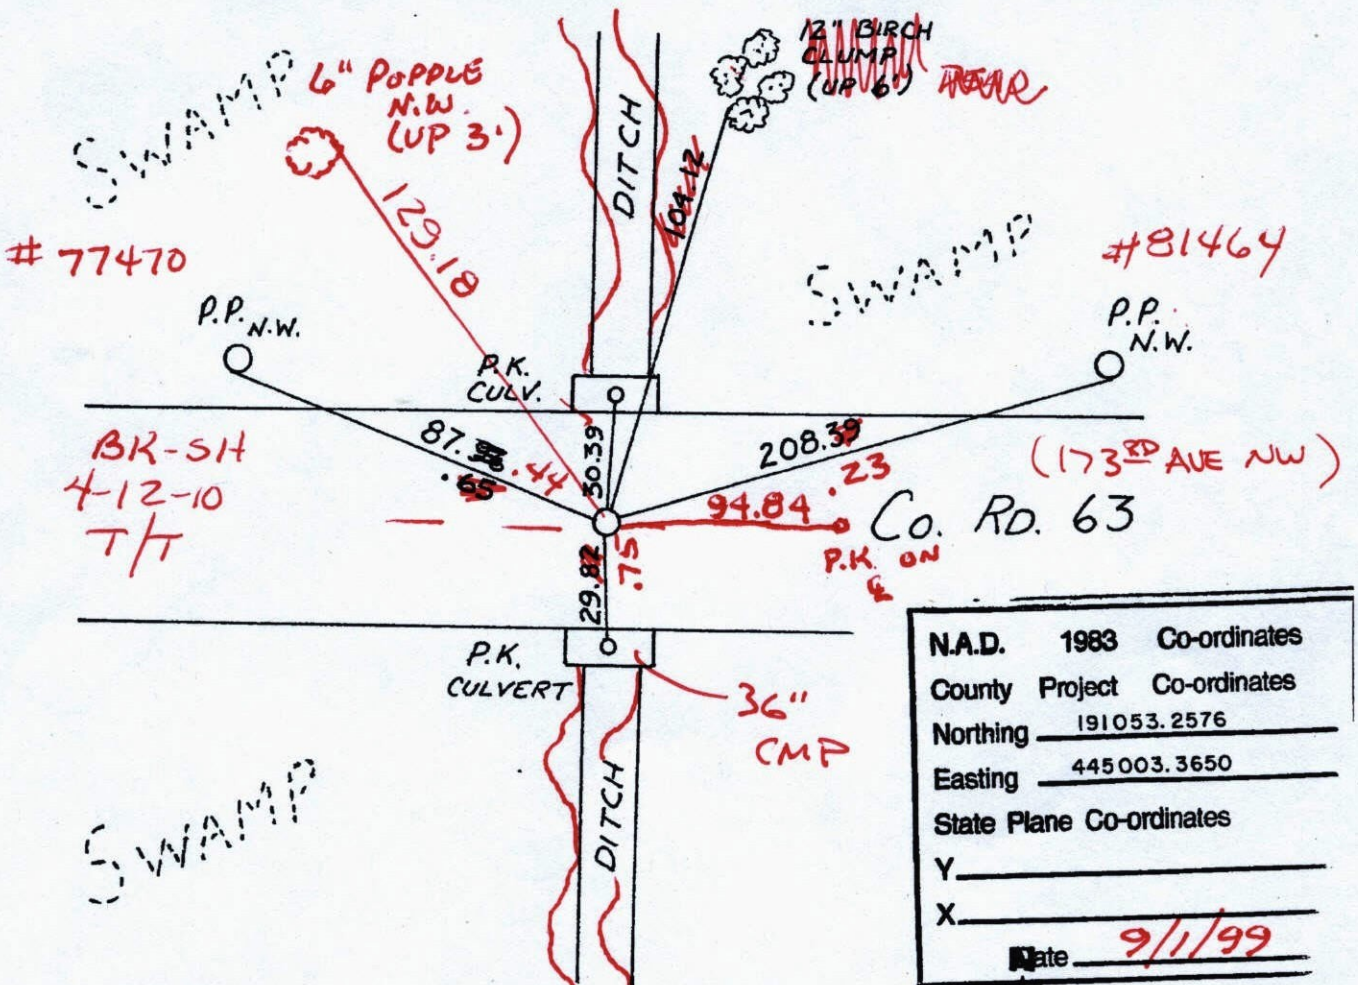 12" BIRCH
CLUMP
(UP 6')
6" POPPLE
N.W.
(UP 3')
SWAMP
DITCH
104.12
129.18
# 77470
SWAMP
#81464
P.P. N.W.
P.P.
N.W.
P.K.
CULV.
87.
.65
.44
30.39
208.39
.23
(173RD AVE NW)
BK-SH
4-12-10
T/T
94.84
Co. RD. 63
P.K. ON
℄
29.82
.75
P.K.
CULVERT
36"
CMP
SWAMP
DITCH
N.A.D. 1983 Co-ordinates
County Project Co-ordinates
Northing 191053.2576
Easting 445003.3650
State Plane Co-ordinates
Y
X
Date 9/1/99